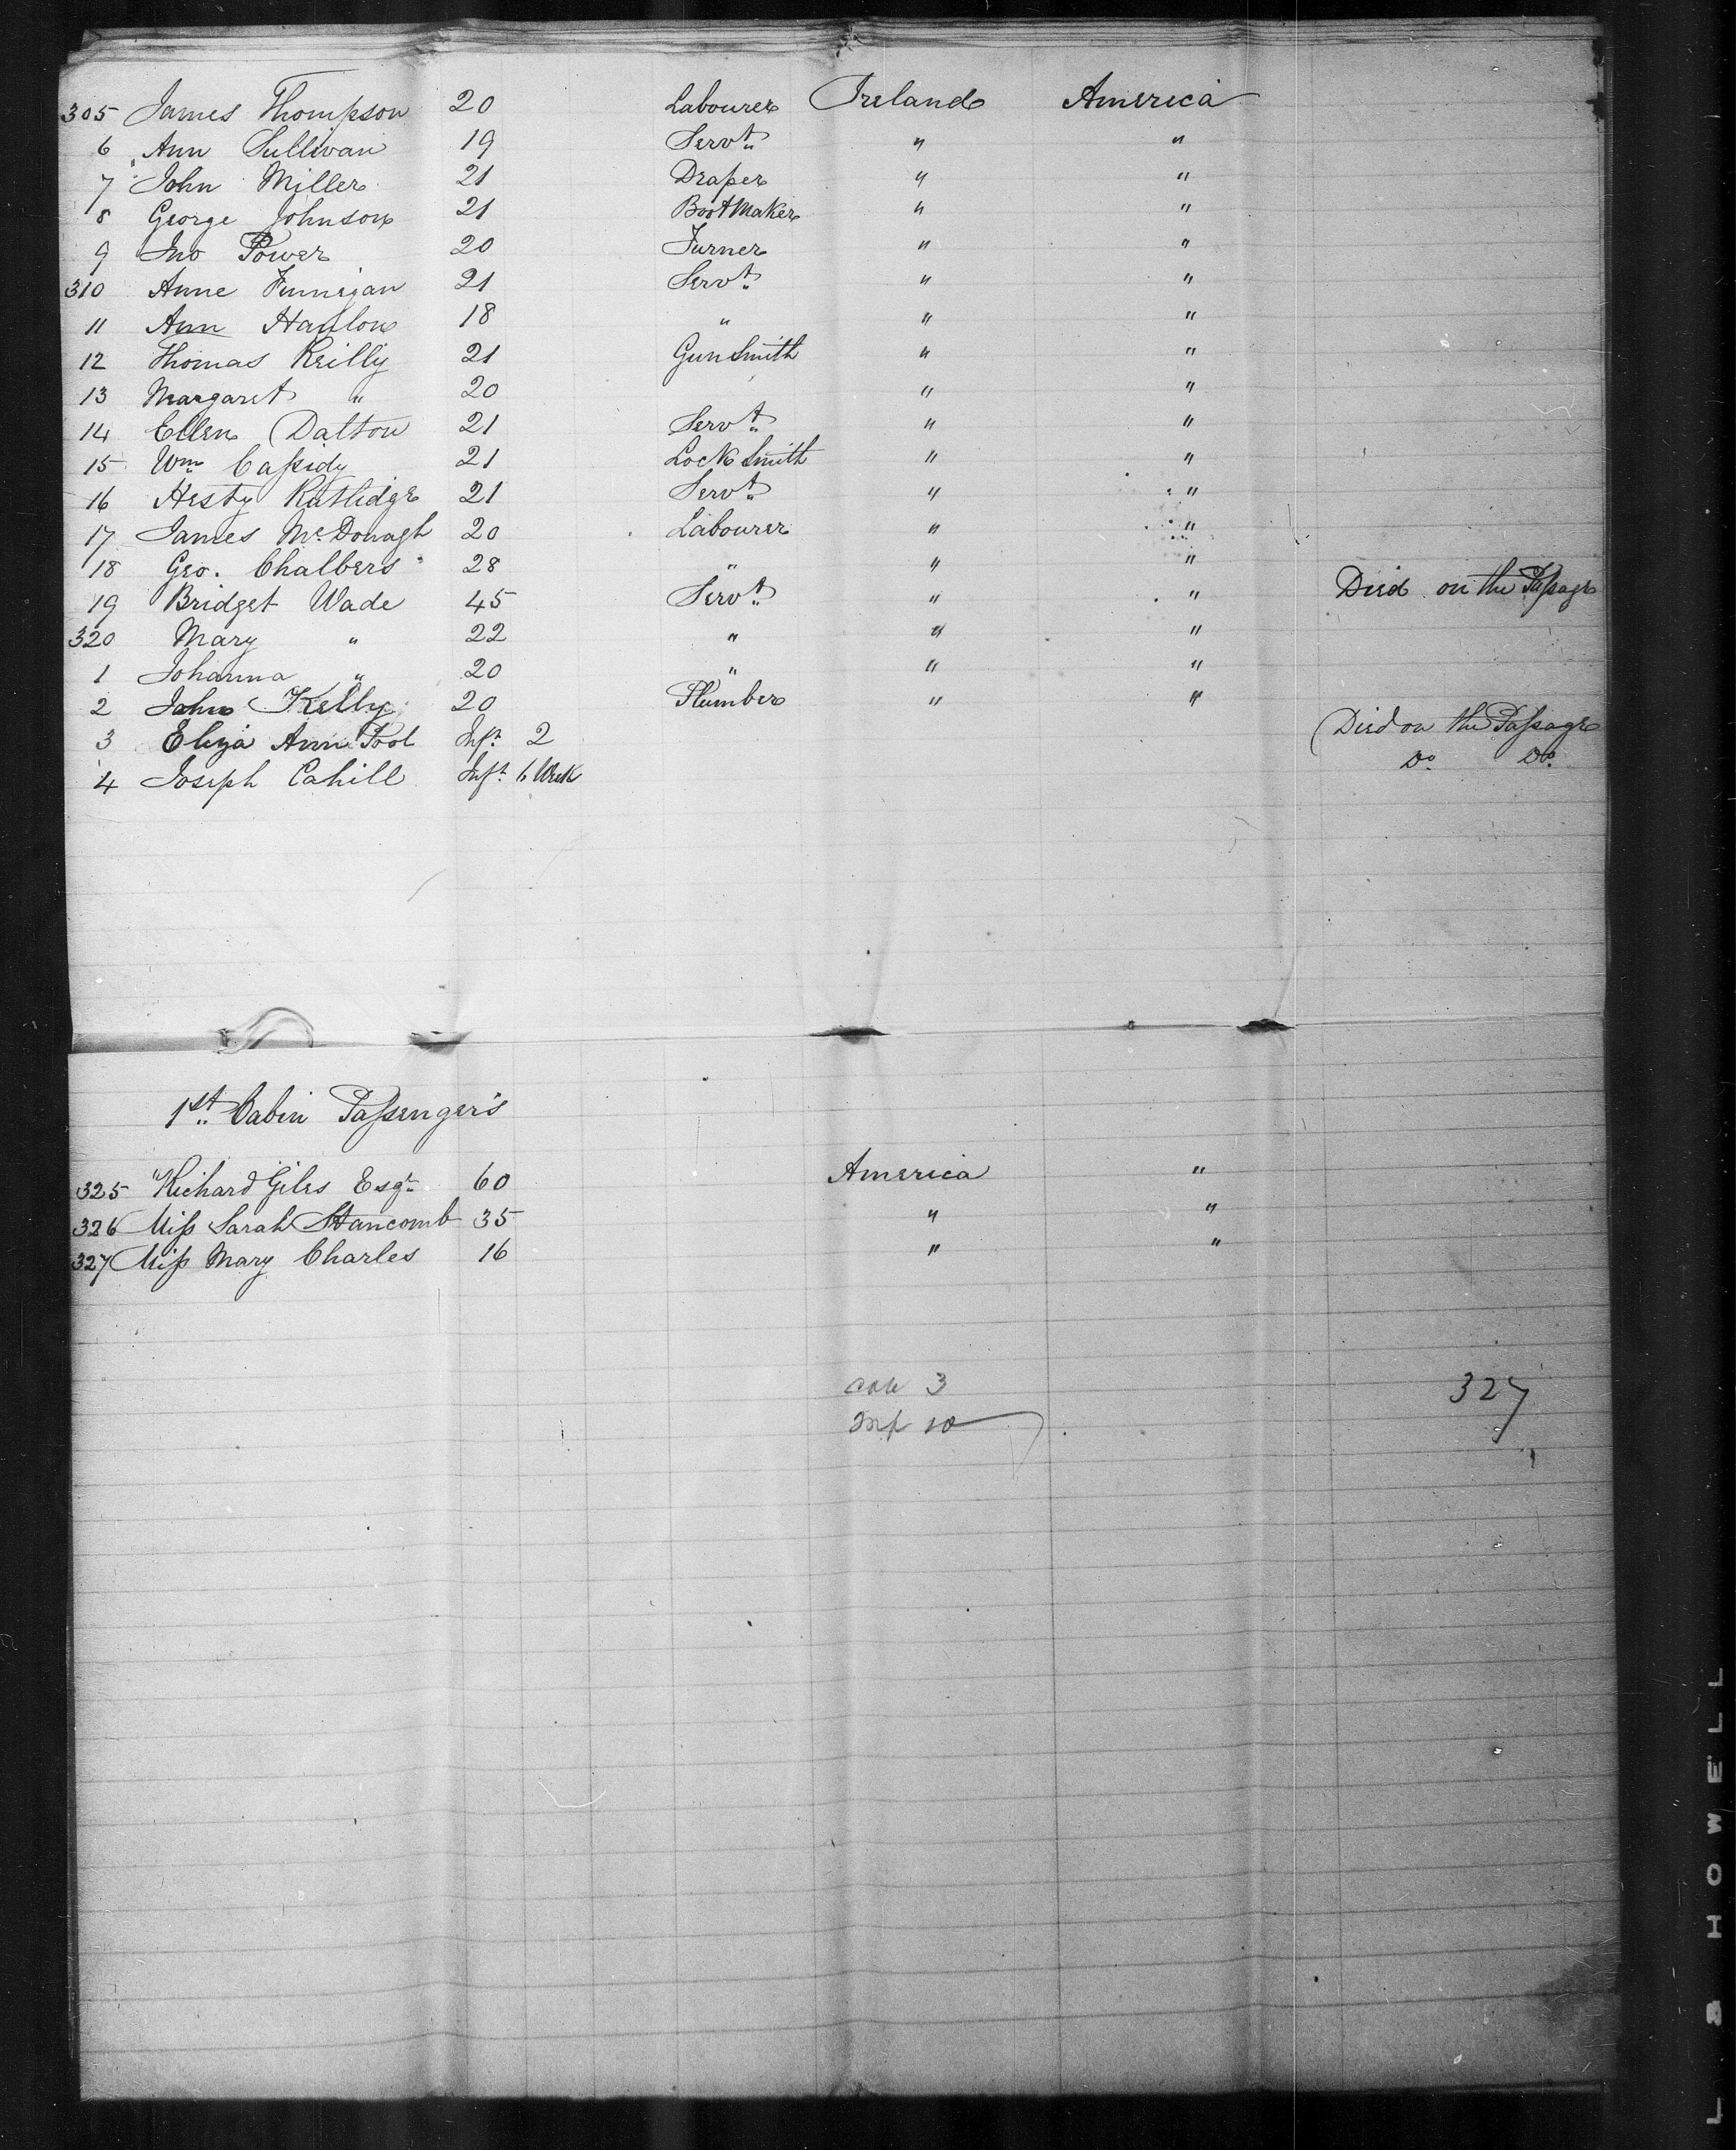 305 James Thompson 20 Labourer Ireland America
6 Ann Sullivan 19 Servt " "
7 John Miller 21 Draper " "
8 George Johnson 21 BootMaker " "
9 Jno Power 20 Turner " "
310 Anne Finnigan 21 Servt " "
11 Ann Hanlon 18 " " "
12 Thomas Reilly 21 GunSmith " "
13 Margaret " 20 " "
14 Ellen Dalton 21 Servt " "
15 Wm Cassidy 21 Lock Smith " "
16 Hesty Rutlidge 21 Servt " "
17 James McDonagh 20 Labourer " "
18 Geo. Chalbers 28 " " "
19 Bridget Wade 45 Servt " " Died on the Passage
320 Mary " 22 " " "
1 Johanna " 20 " " "
2 John Kelly 20 Plumber " "
3 Eliza Ann Pool Inft 2 Died on the Passage
4 Joseph Cahill Inft 6 Week Do Do
1st Cabin Passenger's
325 Richard Giles Esqr 60 America "
326 Miss Sarah Stancomb 35 " "
327 Miss Mary Charles 16 " "
3 327
Inf 10
L & HOWELL